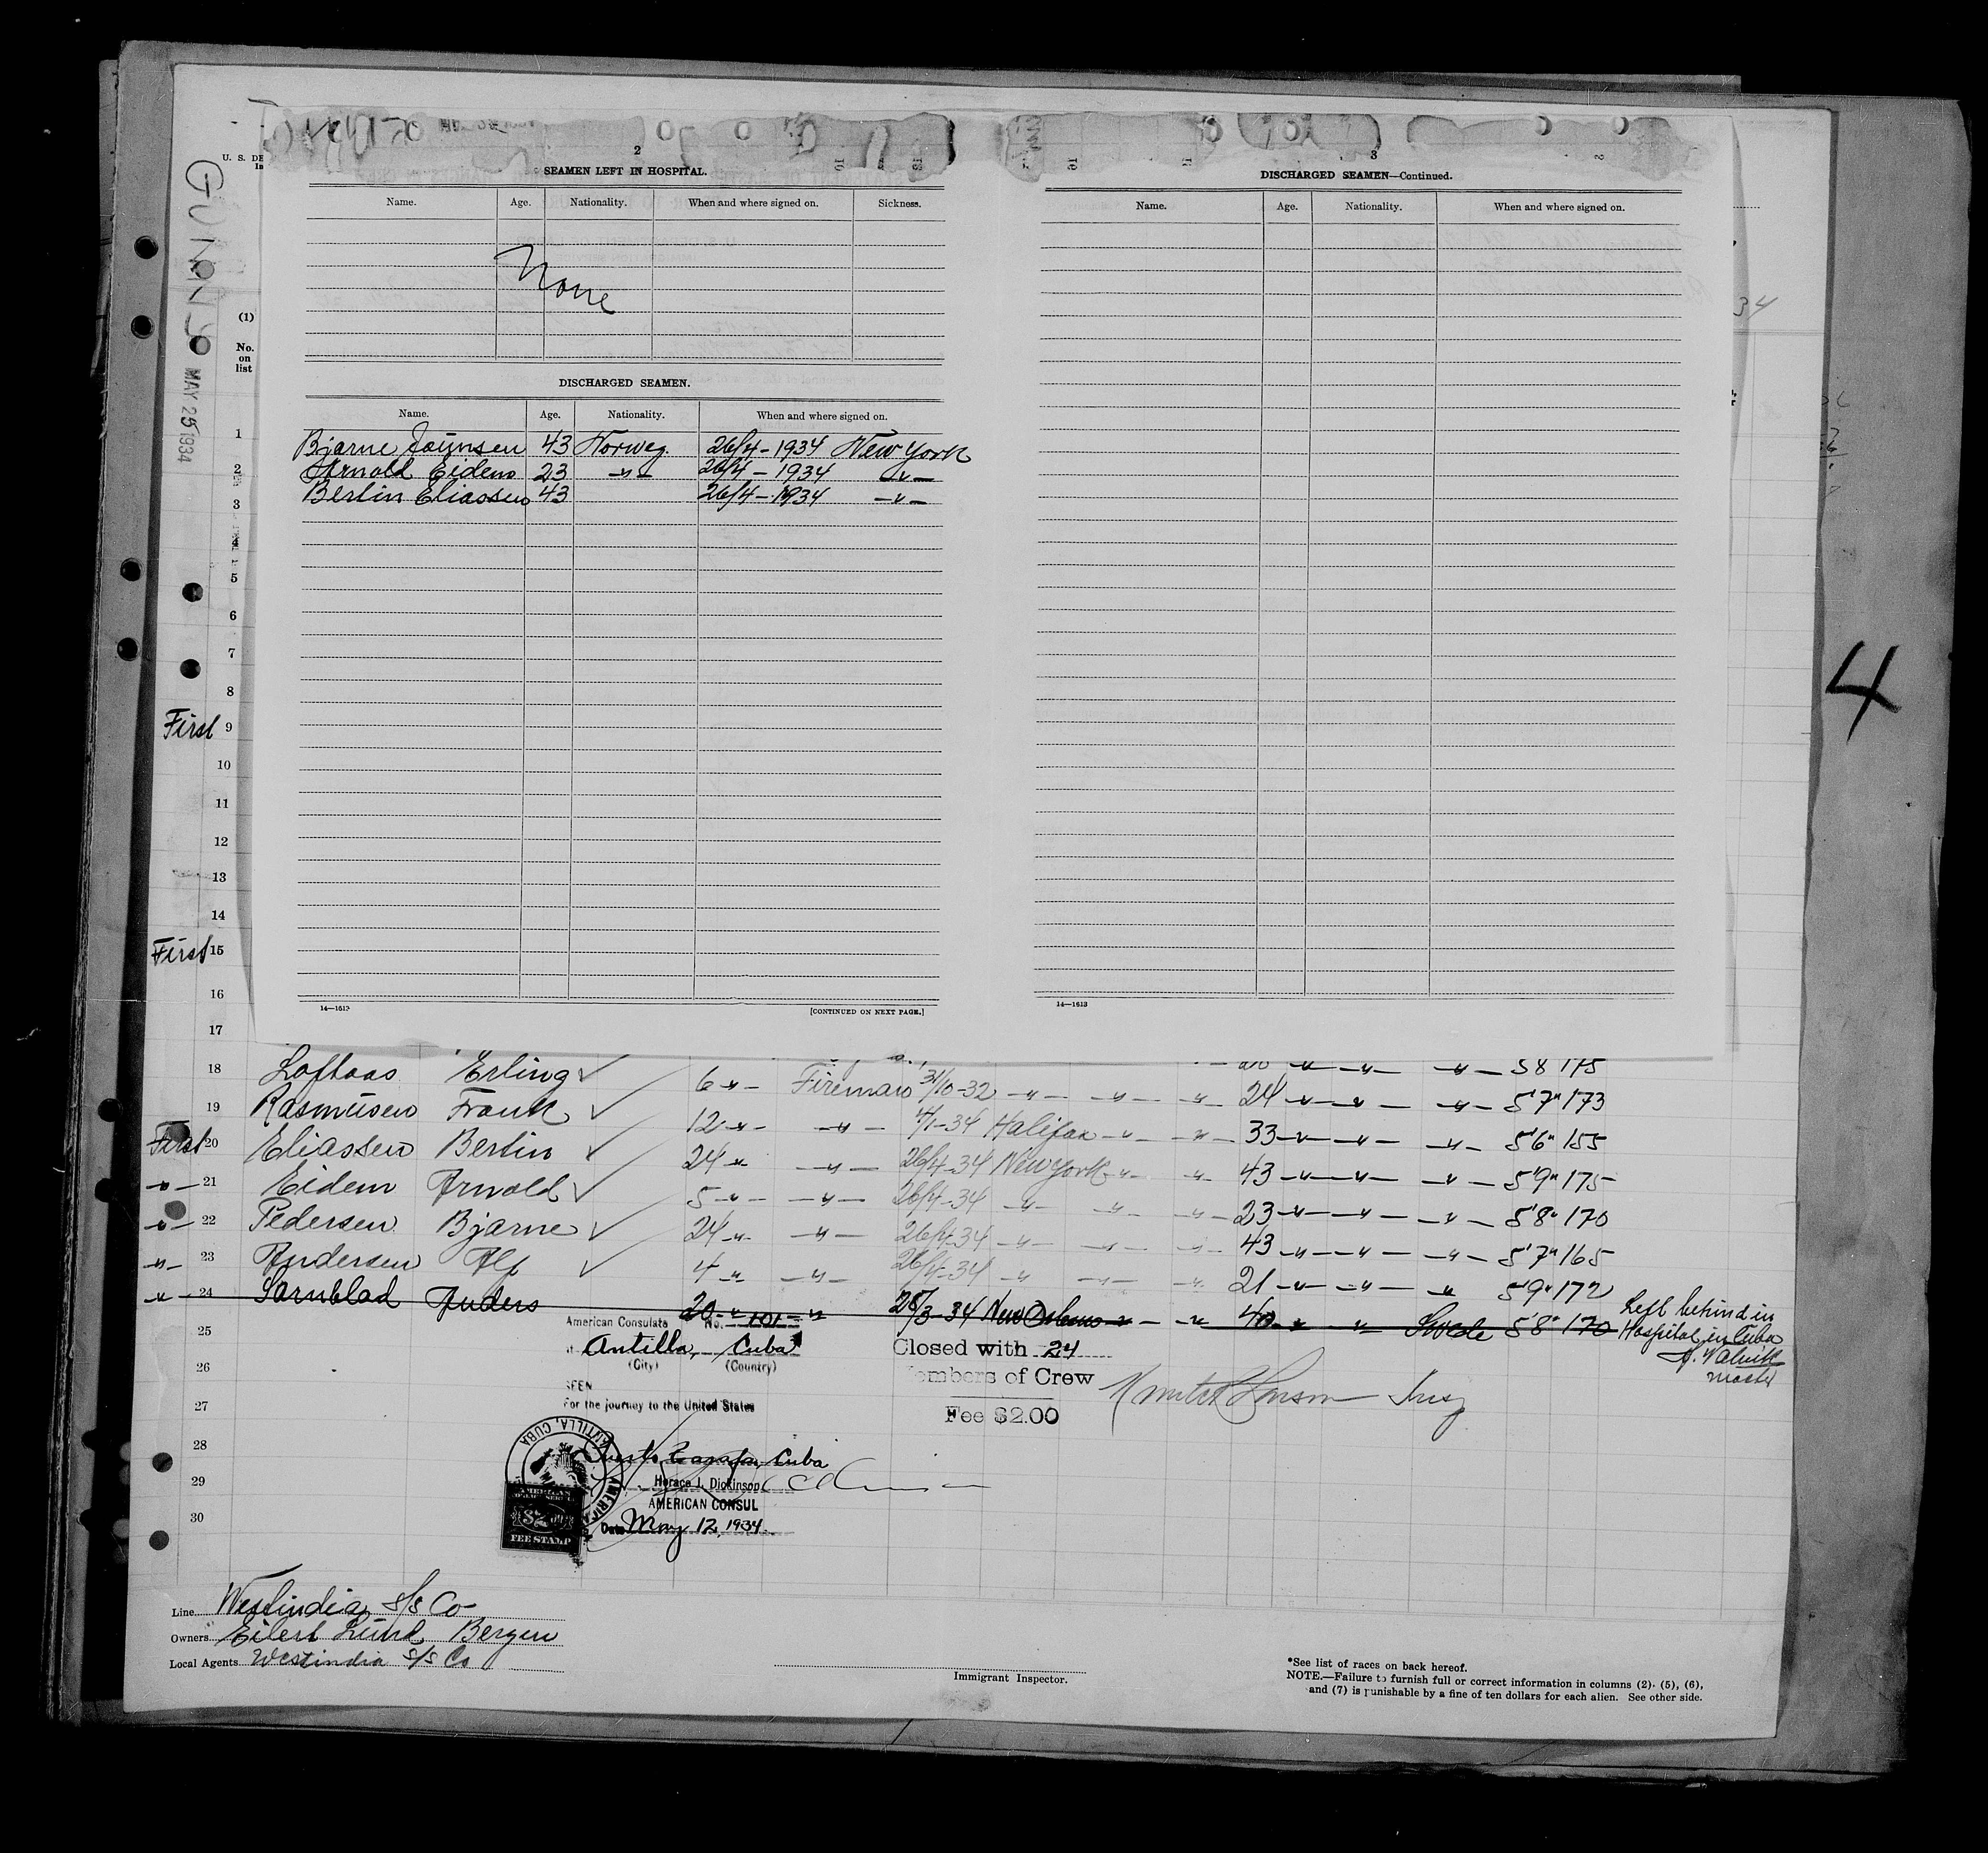 2
SEAMEN LEFT IN HOSPITAL.
Name. Age. Nationality. When and where signed on. Sickness.
None
DISCHARGED SEAMEN.
Name. Age. Nationality. When and where signed on.
Bjarne 43 Norweg. 26/4-1934 New York
Arnold Eidem 23 -"- 26/4-1934 -"-
Bertin Eliassen 43 26/4-1934 -"-
14—1613
[CONTINUED ON NEXT PAGE.]
3
DISCHARGED SEAMEN—Continued.
Name. Age. Nationality. When and where signed on.
14—1613
U. S. DE
In
GUNNY
MAY 25 1934
(1)
No.
on
list
1
2
3
4
5
6
7
8
First 9
10
11
12
13
14
First 15
16
17
34
4
18 Loftaas Erling 5 8 175
19 Rasmusen Frank 6 -"- Fireman 31/10-32 -"- -"- -"- 24 -"- -"- -"- 5'7" 173
First 20 Eliassen Bertin 12 -"- -"- 4/1-34 Halifax -"- -"- 33 -"- -"- -"- 5'6" 155
-"- 21 Eidem Arnold 24 -"- -"- 26/4-34 New York -"- -"- 43 -"- -"- -"- 5'9" 175
-"- 22 Pedersen Bjarne 5 -"- -"- 26/4-34 -"- -"- -"- 23 -"- -"- -"- 5'8" 170
-"- 23 Andersen Alf 24 -"- -"- 26/4-34 -"- -"- -"- 43 -"- -"- -"- 5'7" 165
-"- 24 Sarnblad Anders 4 -"- -"- 26/4-34 -"- -"- -"- 21 -"- -"- -"- 5'9" 172
20 -"- -"- 28/3-34 New Orleans -"- -"- 40 -"- -"- Swede 5'8" 170
Left behind in
Hospital in Cuba
master
25
26
27
28
29
30
American Consulate No. 101
Antilla, Cuba
(City) (Country)
SEEN
For the journey to the United States
Cuba
Horace J. Dickinson
AMERICAN CONSUL
Date May 12, 1934.
ANTILLA, CUBA
AMERICAN
FEE STAMP
Closed with 24
Members of Crew
Fee $2.00
Line Westindia S/S Co
Owners Eilert Lund, Bergen
Local Agents Westindia S/S Co
Immigrant Inspector.
*See list of races on back hereof.
NOTE.—Failure to furnish full or correct information in columns (2), (5), (6),
and (7) is punishable by a fine of ten dollars for each alien. See other side.